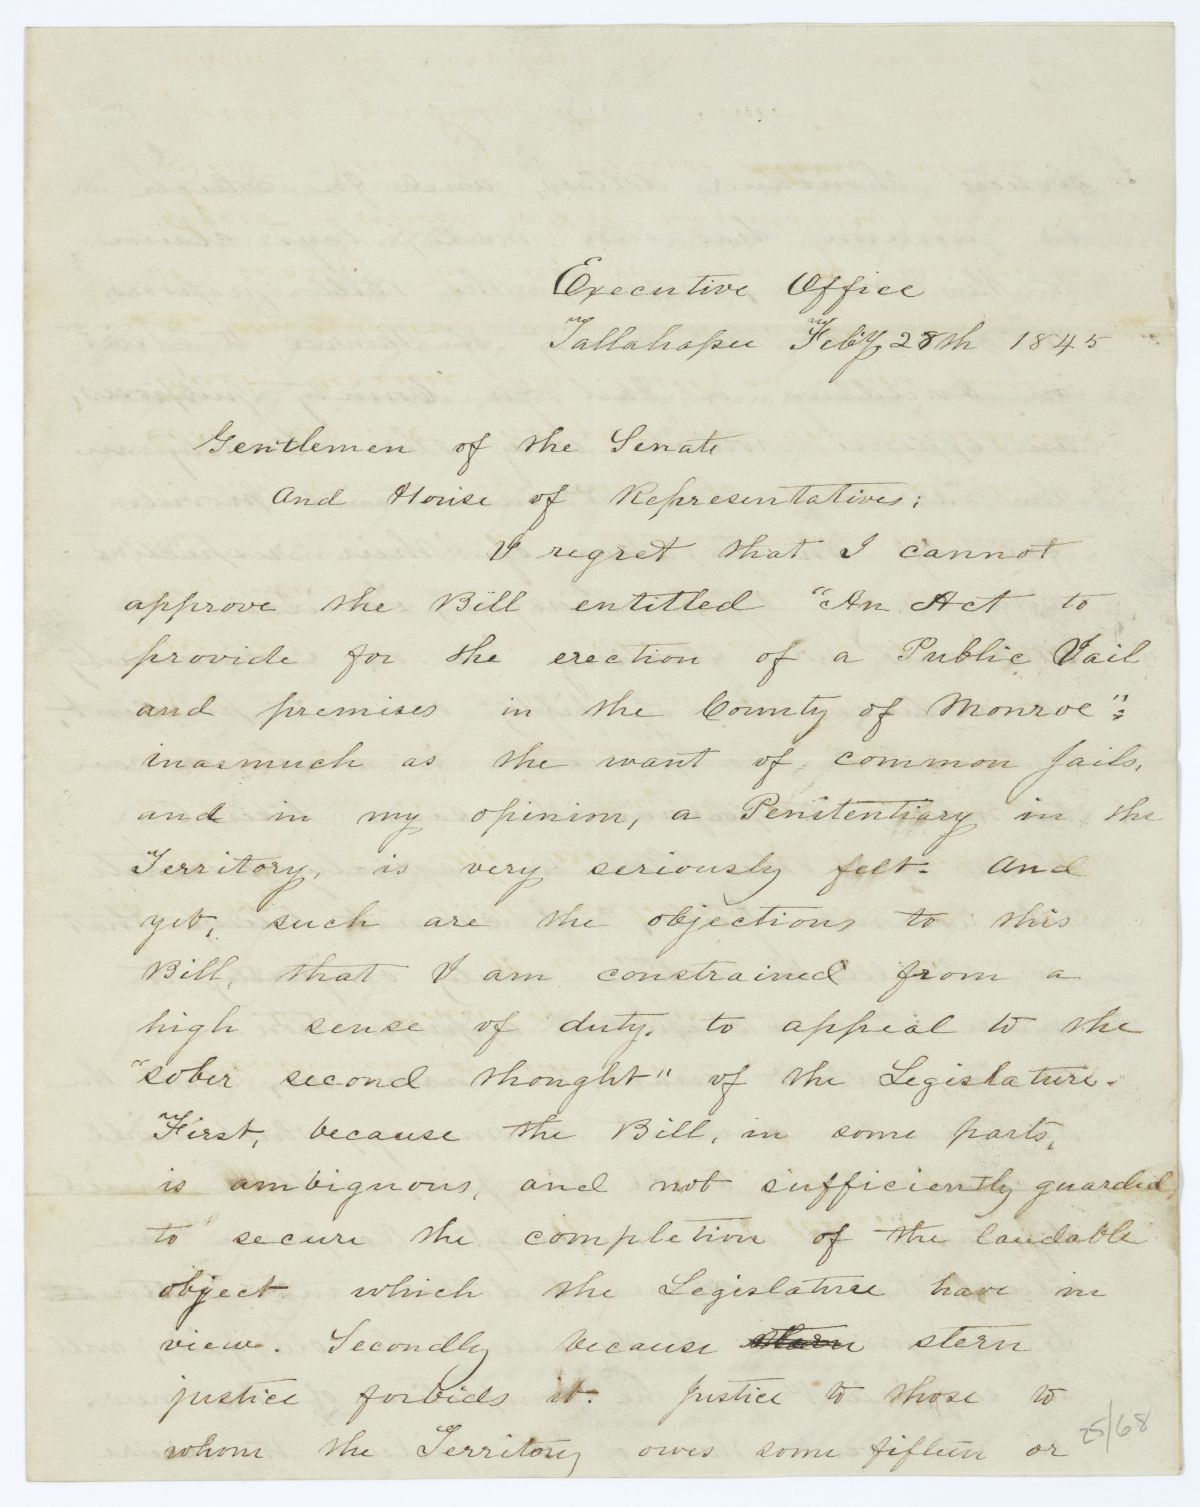 Executive Office
Tallahassee Feby 28th 1845
Gentlemen of the Senate
And House of Representatives;
I regret that I cannot
approve the Bill entitled "An Act to
provide for the erection of a Public Jail
and premises in the County of Monroe":
inasmuch as the want of common jails,
and in my opinion, a Penitentiary in the
Territory, is very seriously felt. And
yet, such are the objections to this
Bill, that I am constrained from a
high sense of duty, to appeal to the
"sober second thought" of the Legislature.
First, because the Bill, in some parts,
is ambiguous, and not sufficiently guarded,
to secure the completion of the laudable
object which the Legislature have in
view. Secondly because stern
justice forbids it. Justice to those to
whom the Territory owes some fifteen or
25/68